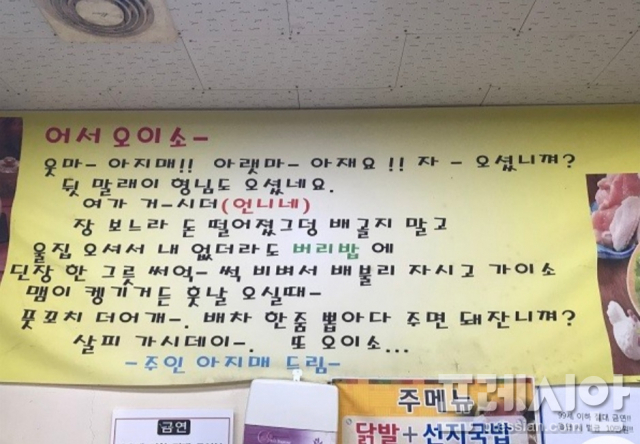 어서오이소-
웃마- 아지매!! 아랫마- 아재요!! 자 - 오셨니껴?
뒷 말래이 형님도 오셨네요.
여가 거-시더(언니네)
장 보느라 돈 떨어졌그덩 배굴지 말고
울집 오셔서 내 없더라도 버리밥 에
딘장 한 그릇 써억- 썩 비벼서 배불리 자시고 가이소
맴이 켕기거든 훗날 오실때-
풋꼬치 더어개-. 배차 한줌 뽑아다 주면 돼잔니껴?
살피 가시데이-. 또 오이소...
-주인 아지매 드림-
금연
주메뉴
닭발+선지국밥
프레시안